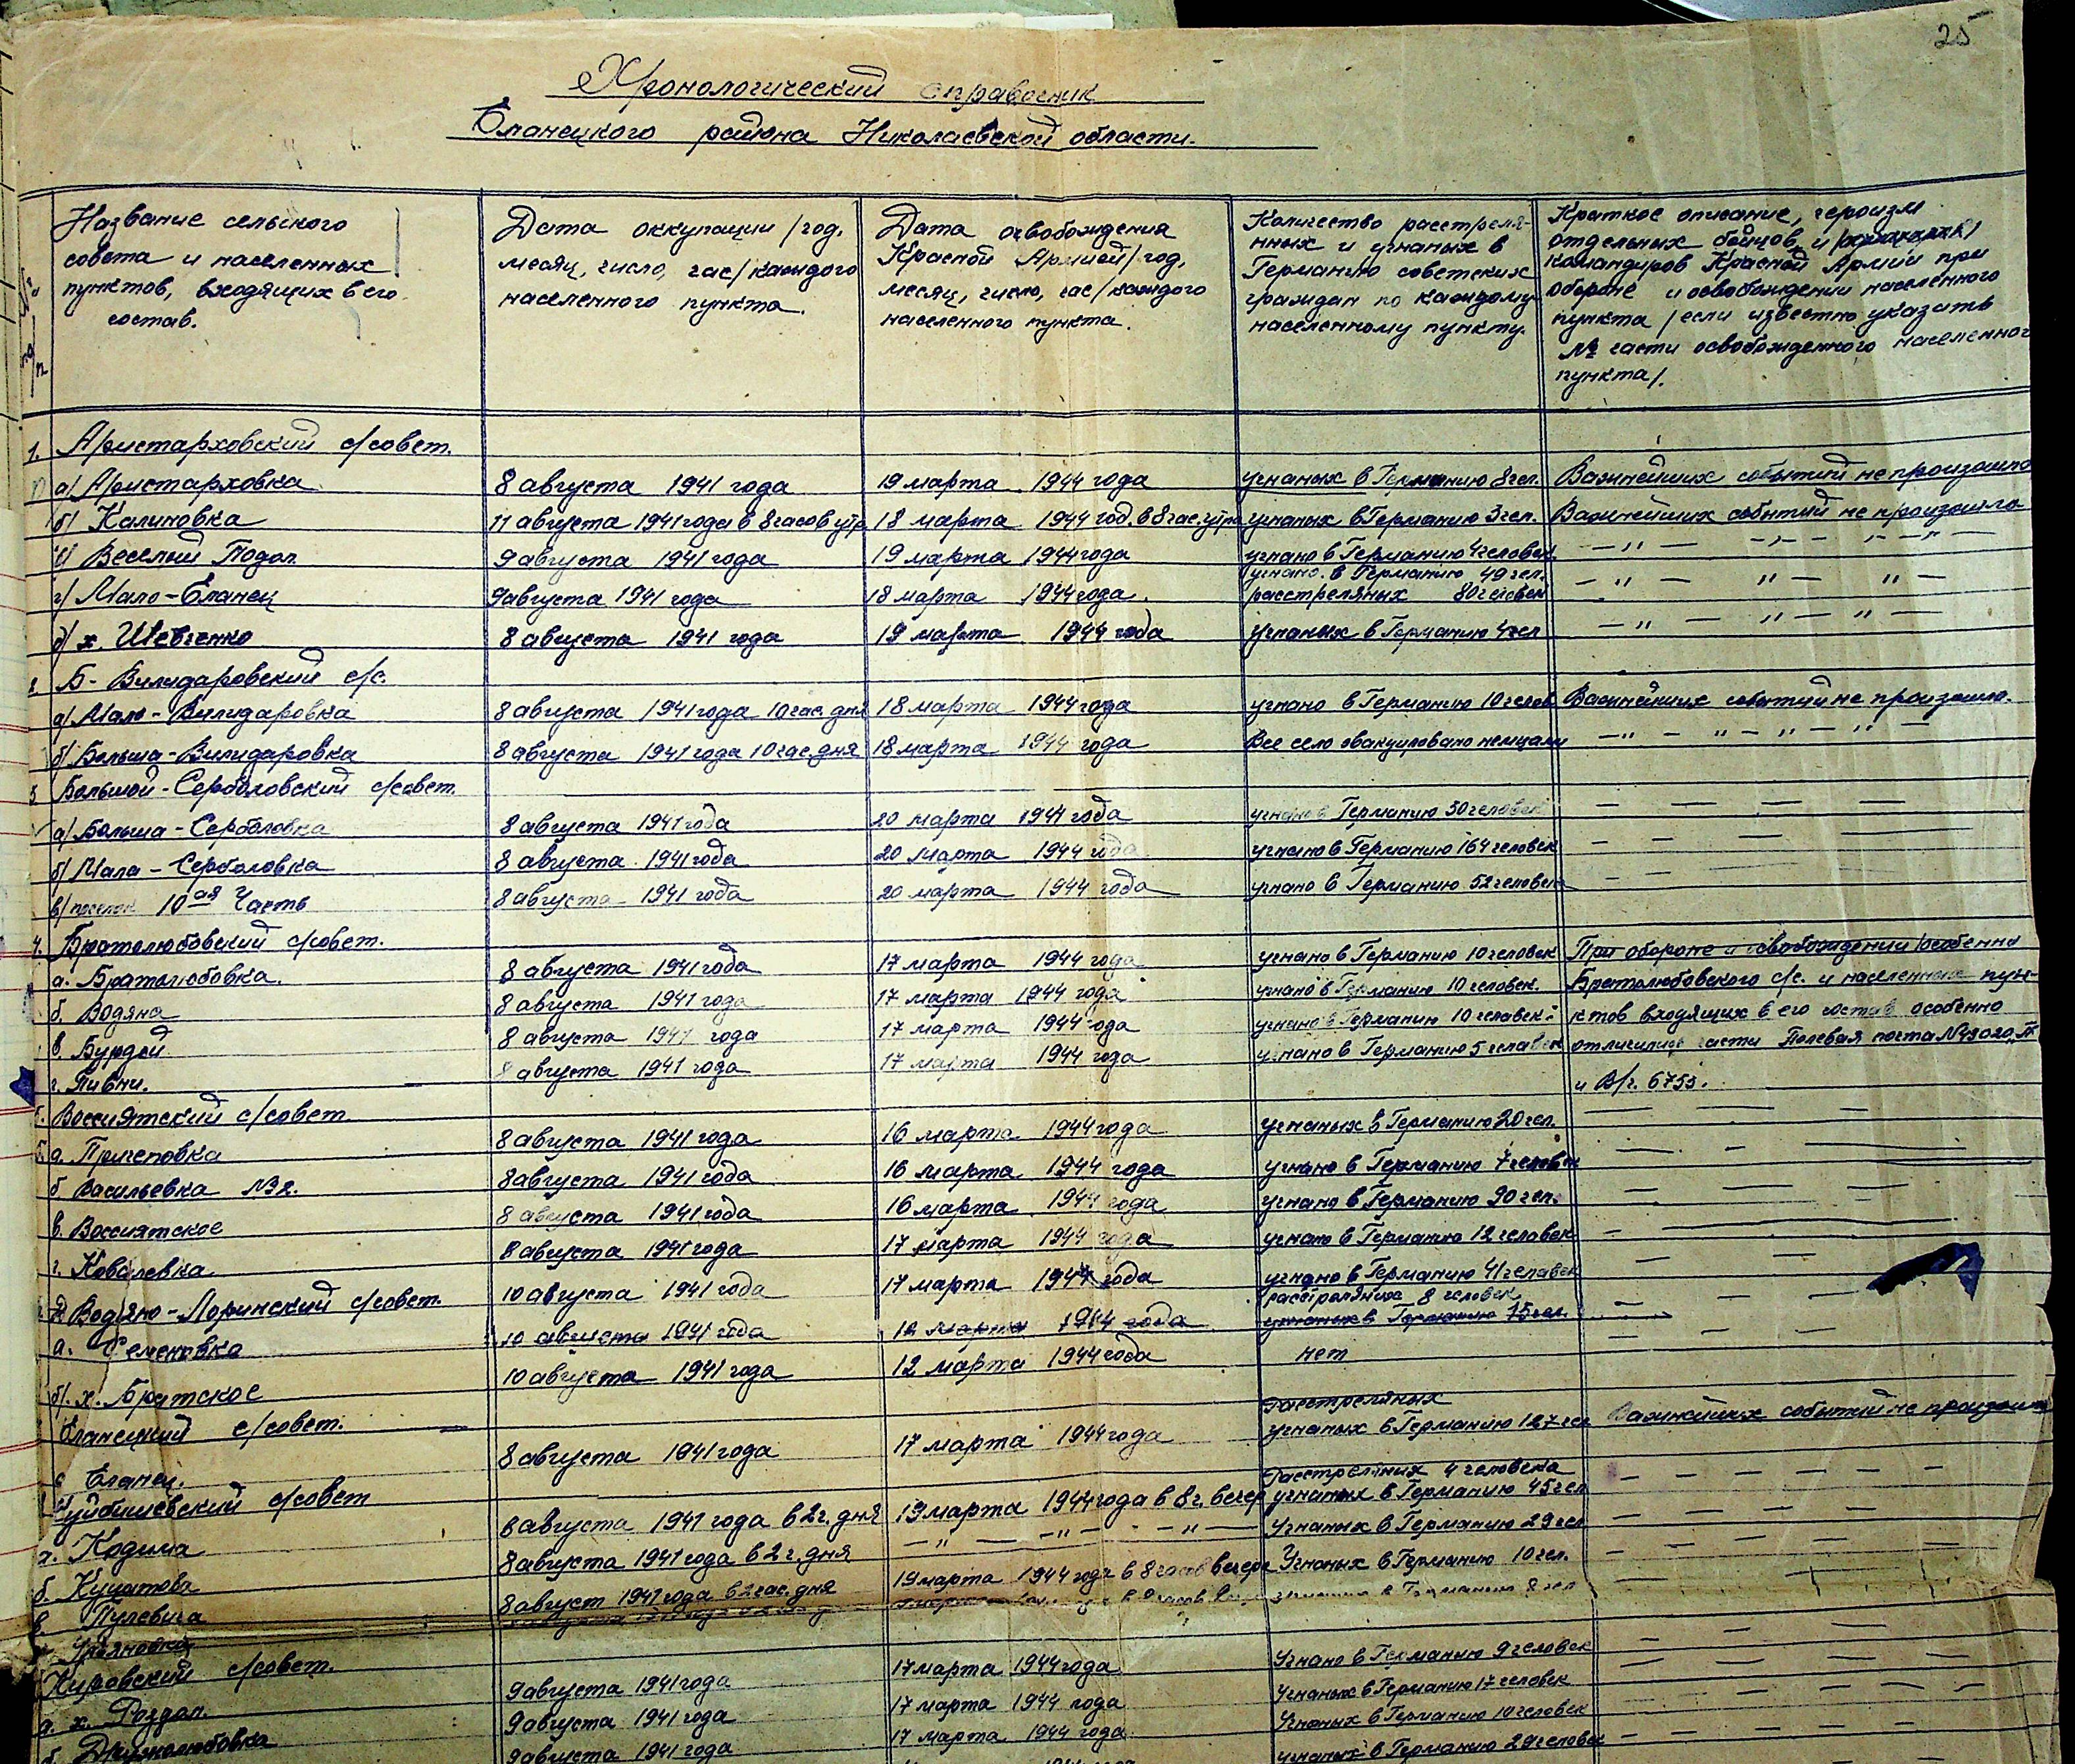 25
Хронологический справочник
Еланецкого района Николаевской области.
№№ п/п
Название сельского
совета и населенных
пунктов, входящих в его
состав.
Дата оккупации /год,
месяц, число, час/ каждого
населенного пункта.
Дата освобождения
Красной Армией /год,
месяц, число, час/ каждого
населенного пункта.
Количество расстреля-
нных и угнаных в
Германию советских
граждан по каждому
населенному пункту.
Краткое описание, героизм
отдельных бойцов и
командиров Красной Армии при
обороне и освобождении населенного
пункта /если известно указать
№ части освобожденного населенног
пункта/.
1. Аристарховский с/совет.
а/ Аристарховка 8 августа 1941 года 19 марта 1944 года угнаных в Германию 8 чел. Важнейших событий не произошло
б/ Калиновка 11 августа 1941 года в 8 часов утра 18 марта 1944 год. в 8 час. утра угнаных в Германию 3 чел. Важнейших событий не произошло
в/ Веселый Подол 9 августа 1941 года 19 марта 1944 года угнано в Германию 4 человек — " — — " — " — " —
г/ Мало-Еланец 9 августа 1941 года 18 марта 1944 года. угнано в Германию 49 чел. — " — " — " —
расстреляных 80 человек
д/ х. Шевченко 8 августа 1941 года 19 марта 1944 года Угнаных в Германию 4 чел — " — " — " —
2 Б-Вилидаровский с/с.
а/ Мало-Вилидаровка 8 августа 1941 года 10 час. дня 18 марта 1944 года угнано в Германию 10 челов Важнейших событий не произошло.
б/ Больша-Вилидаровка 8 августа 1941 года 10 час. дня 18 марта 1944 года Все село эвакуировано немцами — " — " — " — " —
3 Большой-Серболовский с/совет.
а/ Больша-Серболовка 8 августа 1941 года 20 марта 1944 года угнано в Германию 30 человек — — — —
б/ Мала-Серболовка 8 августа 1941 года 20 марта 1944 года угнано в Германию 164 человек — — — —
в/ поселок 10ая Часть 8 августа 1941 года 20 марта 1944 года угнано в Германию 52 человека — — —
4. Братолюбовский с/совет.
а. Братолюбовка. 8 августа 1941 года 17 марта 1944 года угнано в Германию 10 человек При обороне и освобождении особенно
б. Водяна 8 августа 1941 года 17 марта 1944 года угнано в Германию 10 человек. Братолюбовского с/с. и населенных пун-
в. Бурдей 8 августа 1941 года 17 марта 1944 года угнано в Германию 10 человек ктов входящих в его состав особенно
г. Пивни. 8 августа 1941 года 17 марта 1944 года угнано в Германию 5 человек отличились части Полевая почта №43020
и В/ч. 6753.
5. Воссиятский с/совет.
а. Пригеповка 8 августа 1941 года 16 марта 1944 года угнаных в Германию 20 чел. — — — —
б Васильевка №2. 8 августа 1941 года 16 марта 1944 года угнано в Германию 7 человек — — —
в. Воссиятское 8 августа 1941 года 16 марта 1944 года угнано в Германию 90 чел. — — — —
г. Ковалевка 8 августа 1941 года 17 марта 1944 года угнано в Германию 12 человек — — —
Водяно-Лоринский с/совет. 10 августа 1941 года 17 марта 1944 года угнано в Германию 41 человек — —
расстреляных 8 человек
а. Семеновка 10 августа 1941 года 12 марта 1944 года угнаных в Германию 15 чел. — —
б/. х. Братское 10 августа 1941 года 12 марта 1944 года нет — — — —
Еланецкий с/совет.
Расстреляных
а Еланец. 8 августа 1941 года 17 марта 1944 года угнаных в Германию 127 чел Важнейших событий не произошло
Куйбышевский с/совет
Расстреляных 4 человека
а. Кодима 8 августа 1941 года в 2 г. дня 19 марта 1944 года в 8 г. вечер угнаных в Германию 45 чел — — — —
б. 8 августа 1941 года в 2 г. дня — " — — " — — " — Угнаных в Германию 29 чел — — — —
в. 8 август 1941 года в 2 час. дня 19 марта 1944 года в 8 часов вечера Угнаных в Германию 10 чел. — — — —
в Германию 8 чел
Кировский с/совет.
а. х. Роздол 9 августа 1941 года 17 марта 1944 года Угнано в Германию 9 человек — — —
б. Дружелюбовка 9 августа 1941 года 17 марта 1944 года Угнаных в Германию 17 человек — — — —
9 августа 1941 года 17 марта 1944 года Угнаных в Германию 10 человек
угнаных в Германию 29 человек